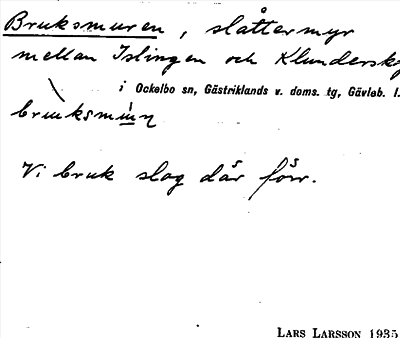 Bruksmuren, slåttermyr
mellan Islingen och Klundersko
i Ockelbo sn, Gästriklands v. doms. tg, Gävleb. l.
Vi bruk slog där förr.
LARS LARSSON 1935